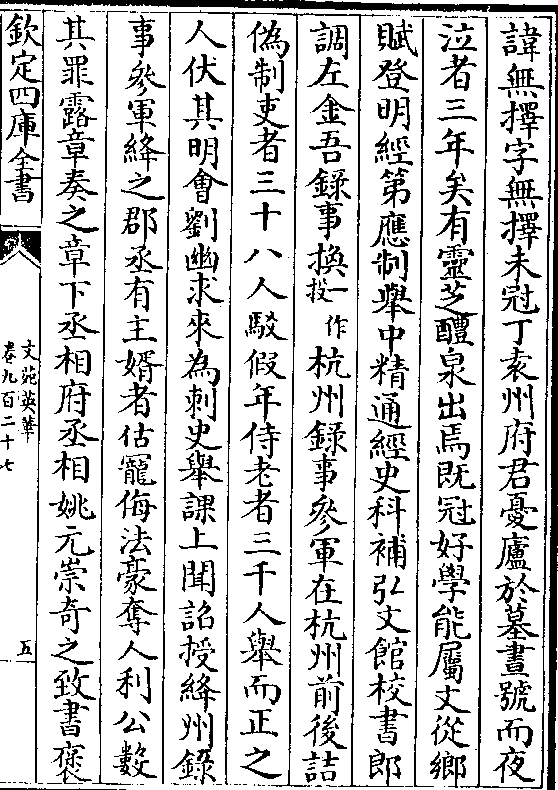 諱無擇字無擇未冠丁袁州府君憂廬於墓晝號而夜
泣者三年矣有靈芝醴泉出焉既冠好學能屬文從鄉
賦登明經第應制舉中精通經史科補弘文館校書郎
調左金吾録事換一作投杭州録事參軍在杭州前後詰
偽制吏者三十八人駁假年侍老者三千人舉而正之
人伏其明會劉幽求來為刺史舉課上聞詔授絳州録
事參軍絳之郡丞有主婿者估寵侮法豪奪人利公數
其罪露章奏之章下丞相府丞相姚元崇奇之致書褒
欽定四庫全書
文苑英華
卷九百二十七
五